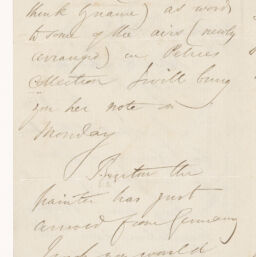 think (name) as words
to some of the airs (newly
arranged) in Petries
Collection I will bring
you her note on
Monday
the
painter has just
arrived from Germany
would